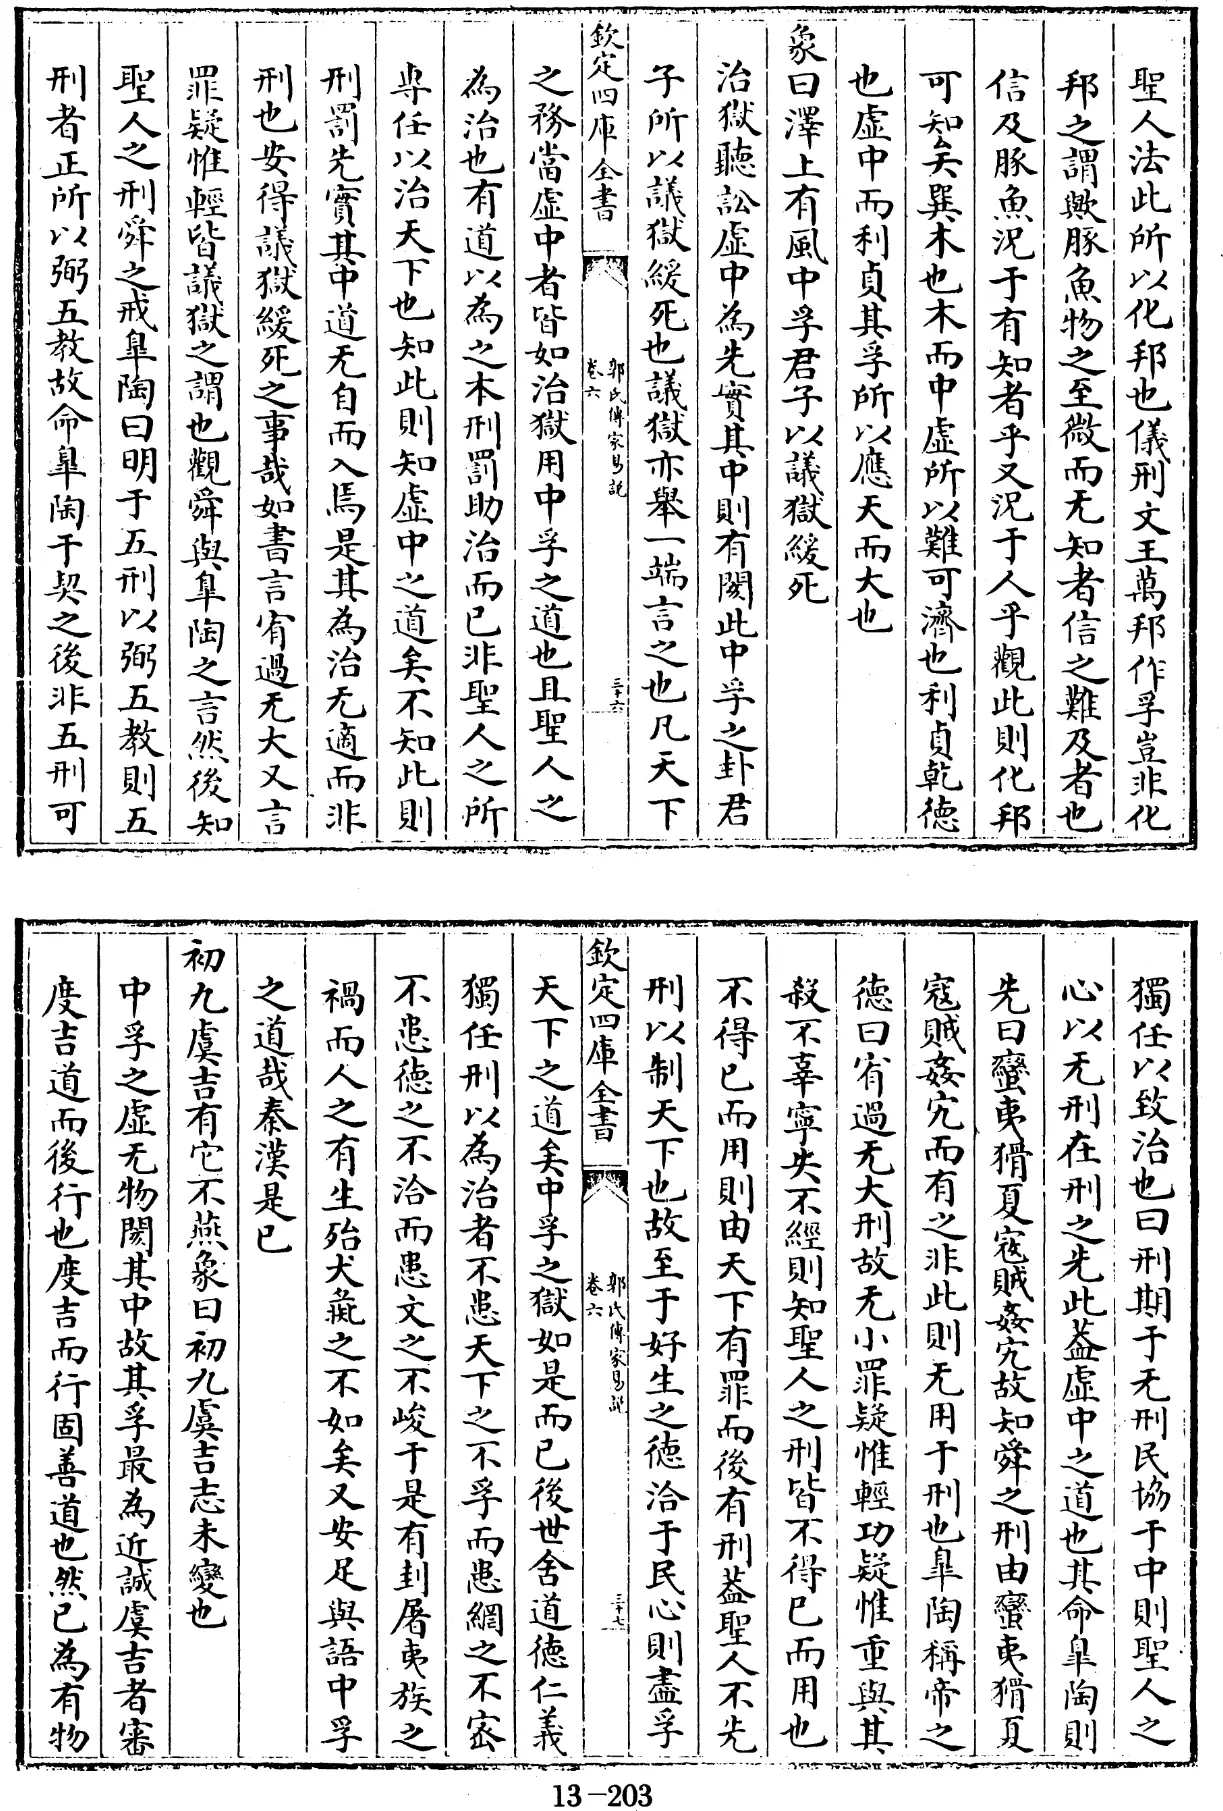 聖人法此所以化邦也儀刑文王萬邦作孚豈非化
邦之謂歟豚魚物之至微而无知者信之難及者也
信及豚魚況于有知者乎又況于人乎觀此則化邦
可知矣巽木也木而中虛所以難可濟也利貞乾德
也虛中而利貞其孚所以應天而大也
象曰澤上有風中孚君子以議獄緩死
治獄聽訟虛中為先實其中則有閡此中孚之卦君
子所以議獄緩死也議獄亦舉一端言之也凡天下
欽定四庫全書
郭氏傳家易說
卷六
三十六
之務當虛中者皆如治獄用中孚之道也且聖人之
為治也有道以為之本刑罰助治而已非聖人之所
専任以治天下也知此則知虛中之道矣不知此則
刑罰先實其中道无自而入焉是其為治无適而非
刑也安得議獄緩死之事哉如書言宥過无大又言
罪疑惟輕皆議獄之謂也觀舜與臯陶之言然後知
聖人之刑舜之戒臯陶曰明于五刑以弼五教則五
刑者正所以弼五教故命臯陶于契之後非五刑可
獨任以致治也曰刑期于无刑民協于中則聖人之
心以无刑在刑之先此葢虛中之道也其命臯陶則
先曰蠻夷猾夏寇賊姦宄故知舜之刑由蠻夷猾夏
寇賊姦宄而有之非此則无用于刑也臯陶稱帝之
德曰宥過无大刑故无小罪疑惟輕功疑惟重與其
殺不辜寧失不經則知聖人之刑皆不得已而用也
不得已而用則由天下有罪而後有刑葢聖人不先
刑以制天下也故至于好生之德洽于民心則盡孚
欽定四庫全書
郭氏傳家易說
卷六
三十七
天下之道矣中孚之獄如是而已後世舍道德仁義
獨任刑以為治者不患天下之不孚而患網之不宻
不患德之不洽而患文之不峻于是有刲屠夷族之
禍而人之有生殆犬彘之不如矣又安足與語中孚
之道哉秦漢是已
初九虞吉有它不燕象曰初九虞吉志未變也
中孚之虛无物閡其中故其孚最為近誠虞吉者審
度吉道而後行也度吉而行固善道也然已為有物
13-203